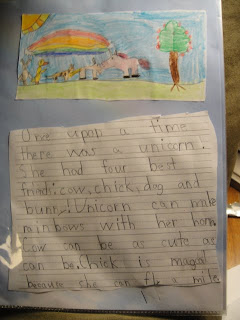 Once upon a time
there was a unicorn.
She had four best
friends: cow, chick, dog and
bunny! Unicorn can make
rainbows with her horn.
Cow can be as cute as
can be. Chick is magal
because she can fly a mile